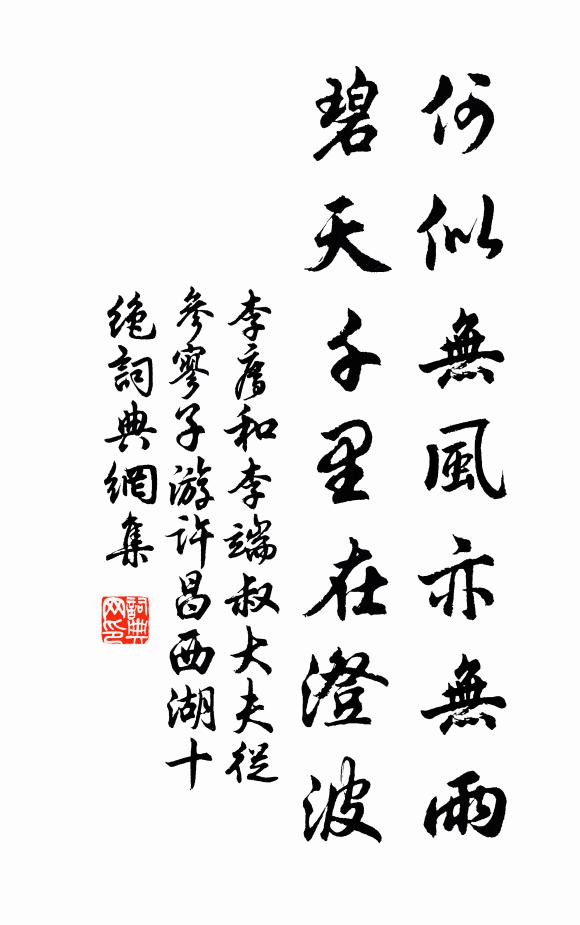 何似無風亦無雨
碧天千里在澄波
李廌和李端叔大夫從
參寥子游許昌西湖十
絶詞典網集
詞典
网印